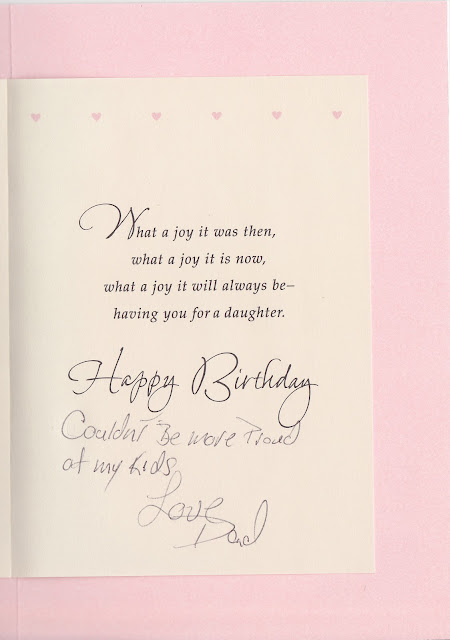 What a joy it was then,
what a joy it is now,
what a joy it will always be–
having you for a daughter.
Happy Birthday
Couldn't Be more Proud
of my Kids
Love
Dad